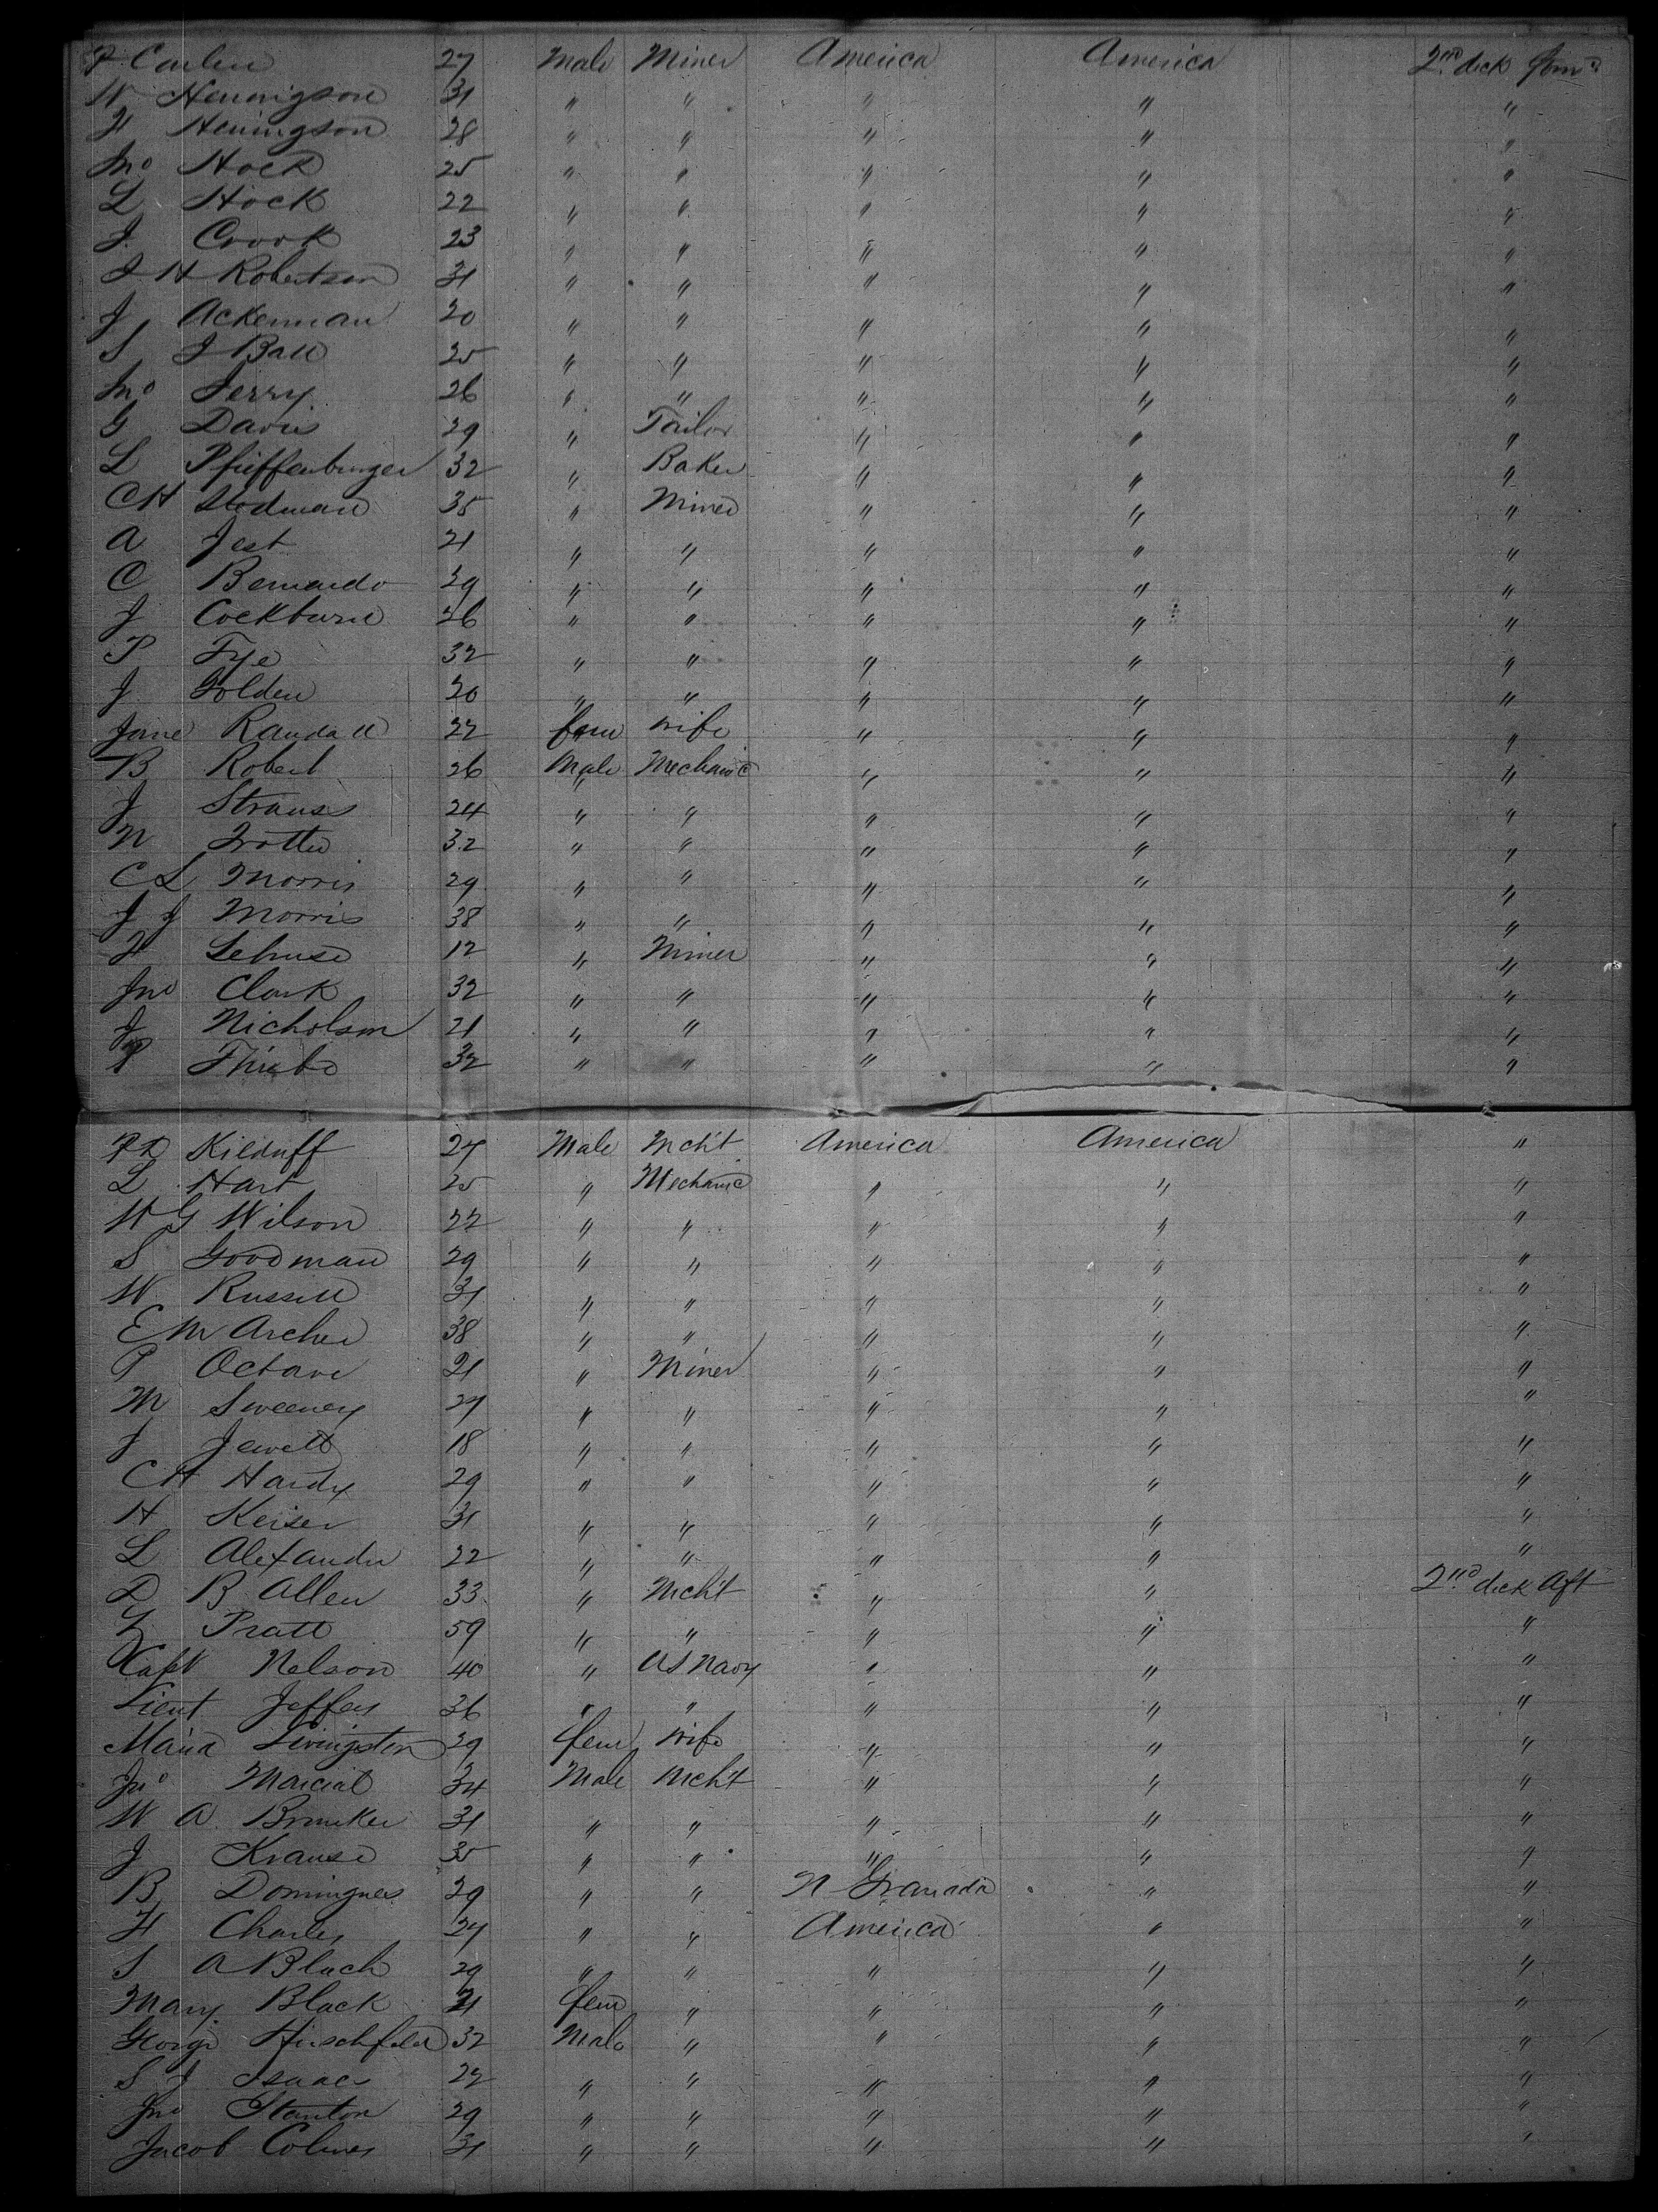 Carlew 27 Male Miner America America 2nd deck
W Henningson 31 " " " " "
H Henningson 28 " " " " "
Jno Hock 25 " " " " "
L Hock 22 " " " " "
J. Crook 23 " " " " "
J H Robertson 31 " " " " "
J Ackerman 20 " " " " "
S J Ball 25 " " " " "
Jno Jerry 26 " " " " "
G Davis 29 " Tailor " " "
L Pfieffenburger 32 " Baker " " "
CH Stedman 35 " Miner " " "
A Jest 21 " " " " "
C Bernardo 29 " " " " "
J Cockburn 26 " " " " "
P Fye 32 " " " " "
J Golden 20 " " " " "
Jane Randall 22 fem wife " " "
B Robert 26 Male Mechanic " " "
J Strauss 24 " " " " "
N Trotter 32 " " " " "
C L Morris 29 " " " " "
J J Morris 38 " " " " "
12 " Miner " " "
Jno Clark 32 " " " " "
J Nicholson 21 " " " " "
P 32 " " " " "
Kilduff 27 Male Mcht America America "
L Hart 25 " Mechanic " " "
W G Wilson 22 " " " " "
S Goodman 29 " " " " "
W Russell 31 " " " " "
E M Archer 38 " " " " "
P Octave 21 " Miner " " "
M Sweeney 27 " " " " "
J Jewell 18 " " " " "
CH Hardy 29 " " " " "
H Keiser 31 " " " " "
L Alexander 22 " " " " "
D B Allen 33 " Mcht " " 2nd deck Aft
Z Pratt 59 " " " " "
Capt Nelson 40 " US Navy " " "
Lieut Jeffers 36 " " " " "
Maria Livingston 29 fem wife " " "
Jno Marcial 34 Male Mcht " " "
W A Brunker 31 " " " " "
J Krause 35 " " " " "
B Domingues 29 " " N Granada " "
H Charles 27 " " America " "
S A Black 29 " " " " "
Mary Black 21 fem " " " "
George Hirschfeld 32 Male " " " "
S J Isaacs 22 " " " " "
Jno Stanton 29 " " " " "
Jacob Colmes 31 " " " " "